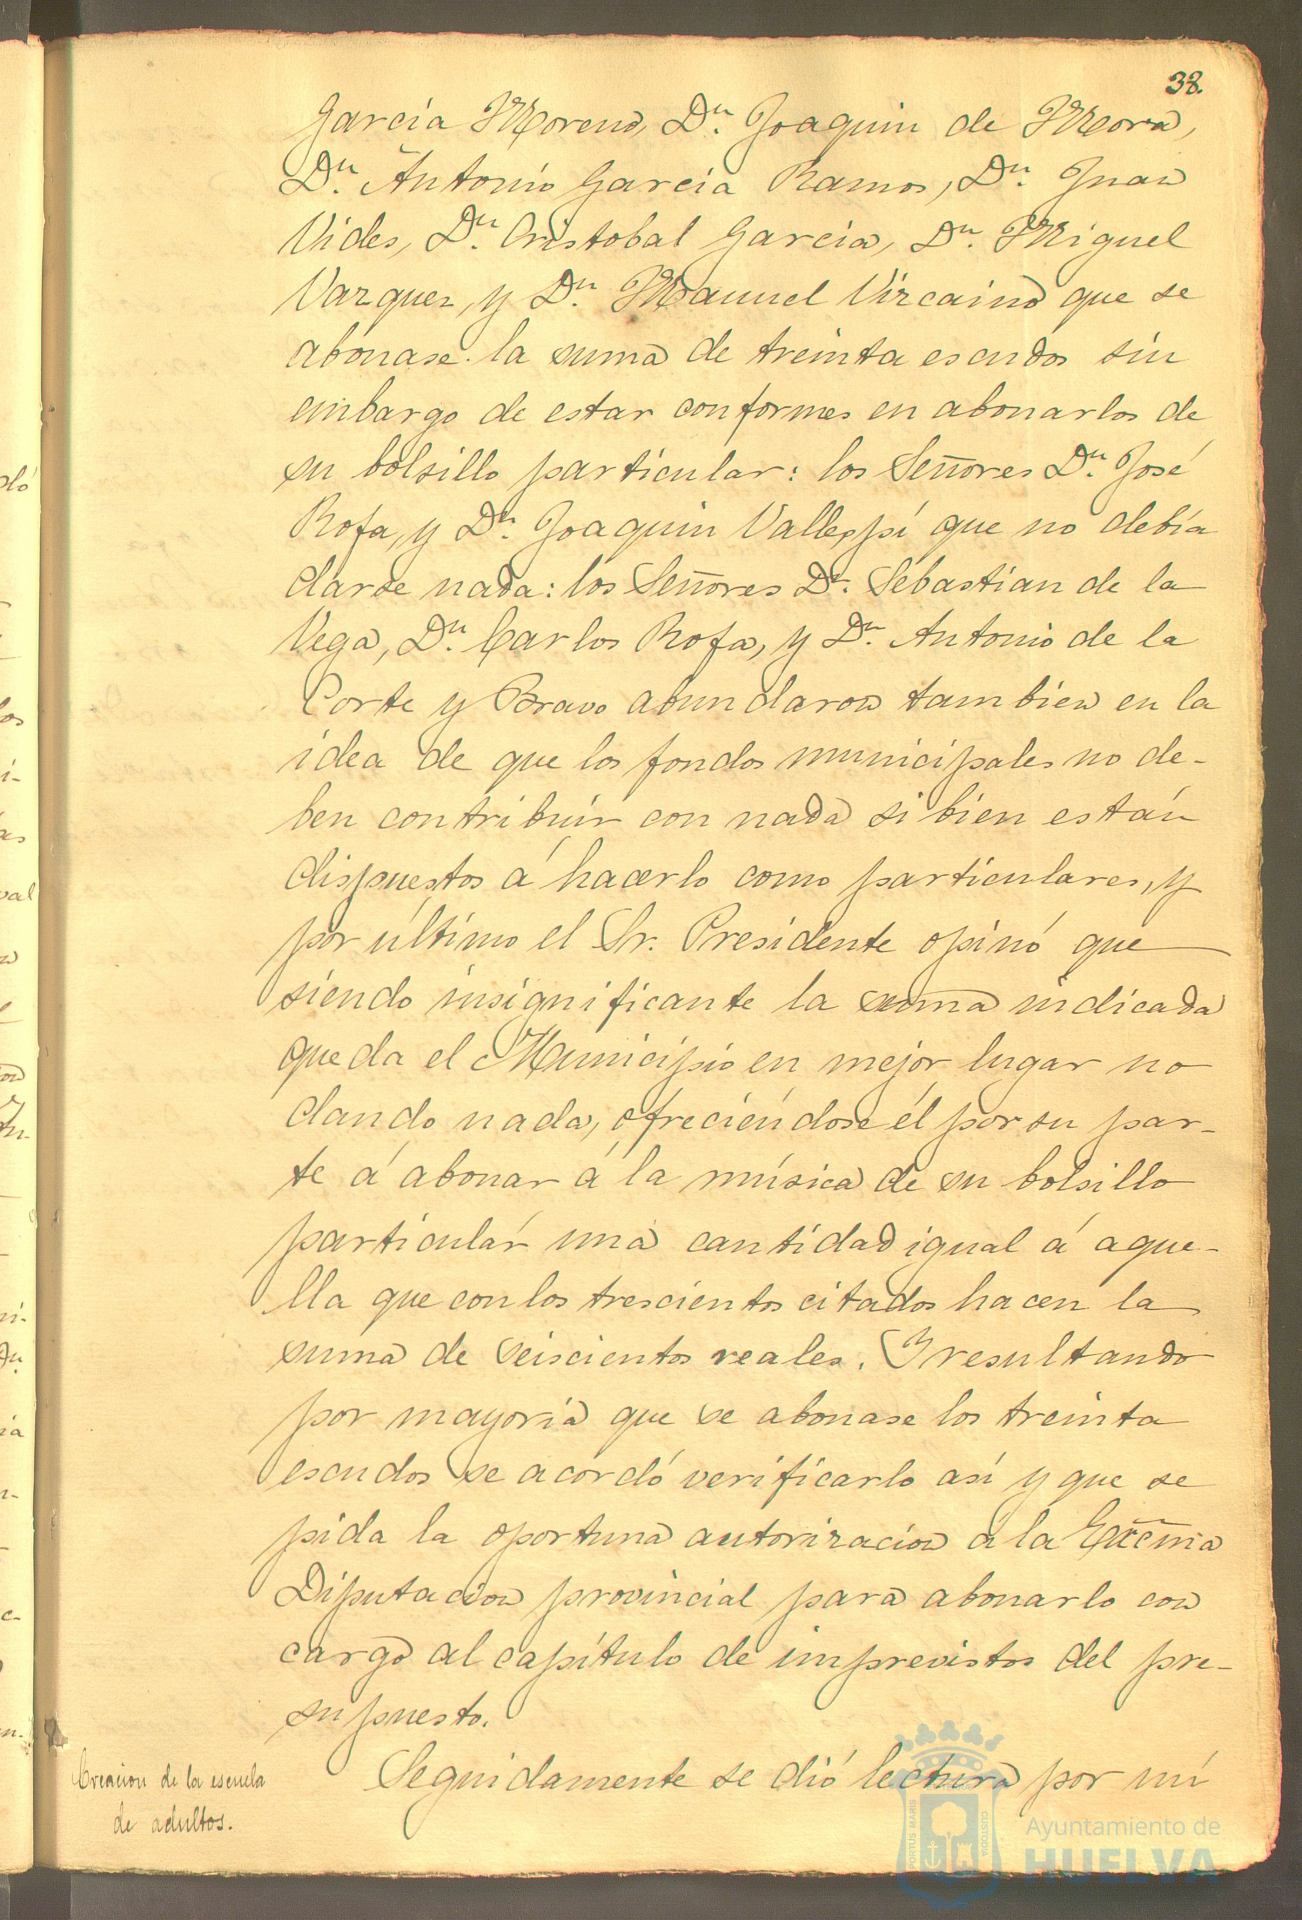 38.
García Moreno, Dn. Joaquin de Mora,
Dn. Antonio Garcia Ramos, Dn. Juan
Vides, Dn. Cristobal Garcia, Dn. Miguel
Vazquez, y Dn. Manuel Vizcaino que se
abonase la suma de treinta escudos sin
embargo de estar conformes en abonarlos de
su bolsillo particular: los Señores Dn. José
Rofa, y Dn. Joaquin Vallespí que no debía
darse nada: los Señores Dn. Sebastian de la
Vega, Dn. Carlos Rofa, y Dn. Antonio de la
Corte y Bravo abundaron tambien en la
idea de que los fondos municipales no de-
ben contribuir con nada si bien están
dispuestos á hacerlo como particulares, y
por último el Sr. Presidente opinó que
siendo insignificante la suma indicada
queda el Municipio en mejor lugar no
dando nada, ofreciéndose él por su par-
te á abonar á la música de su bolsillo
particulár una cantidad igual á aque-
lla que con los trescientos citados hacen la
suma de seiscientos reales. Y resultando
por mayoria que se abonase los treinta
escudos se acordó verificarlo así y que se
pida la oportuna autorizacion á la Excma
Diputacion provincial para abonarlo con
cargo al capítulo de imprevistos del pre-
supuesto.
Creacion de la escuela
de adultos.
Seguidamente se dió lectura por mí
PORTUS MARIS CUSTODIA
Ayuntamiento de
HUELVA